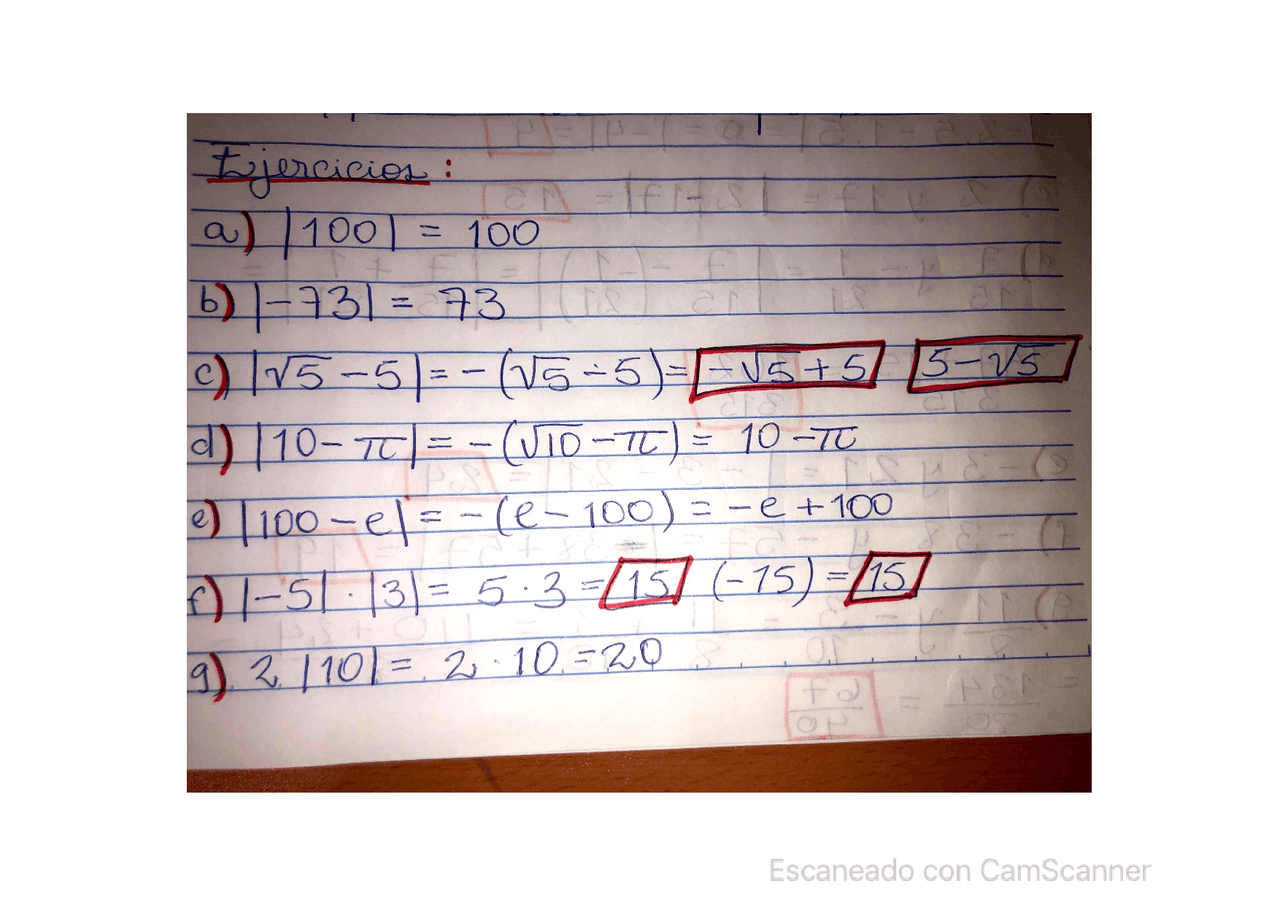 Ejercicios:
a) |100| = 100
b) |-73| = 73
c) |√5 - 5| = -(√5 - 5) = -√5 + 5 5 - √5
d) |10 - π| = -(√10 - π) = 10 - π
e) |100 - e| = -(e - 100) = -e + 100
f) |-5| · |3| = 5 · 3 = 15 (-15) = 15
g) 2 |10| = 2 · 10 = 20
Escaneado con CamScanner